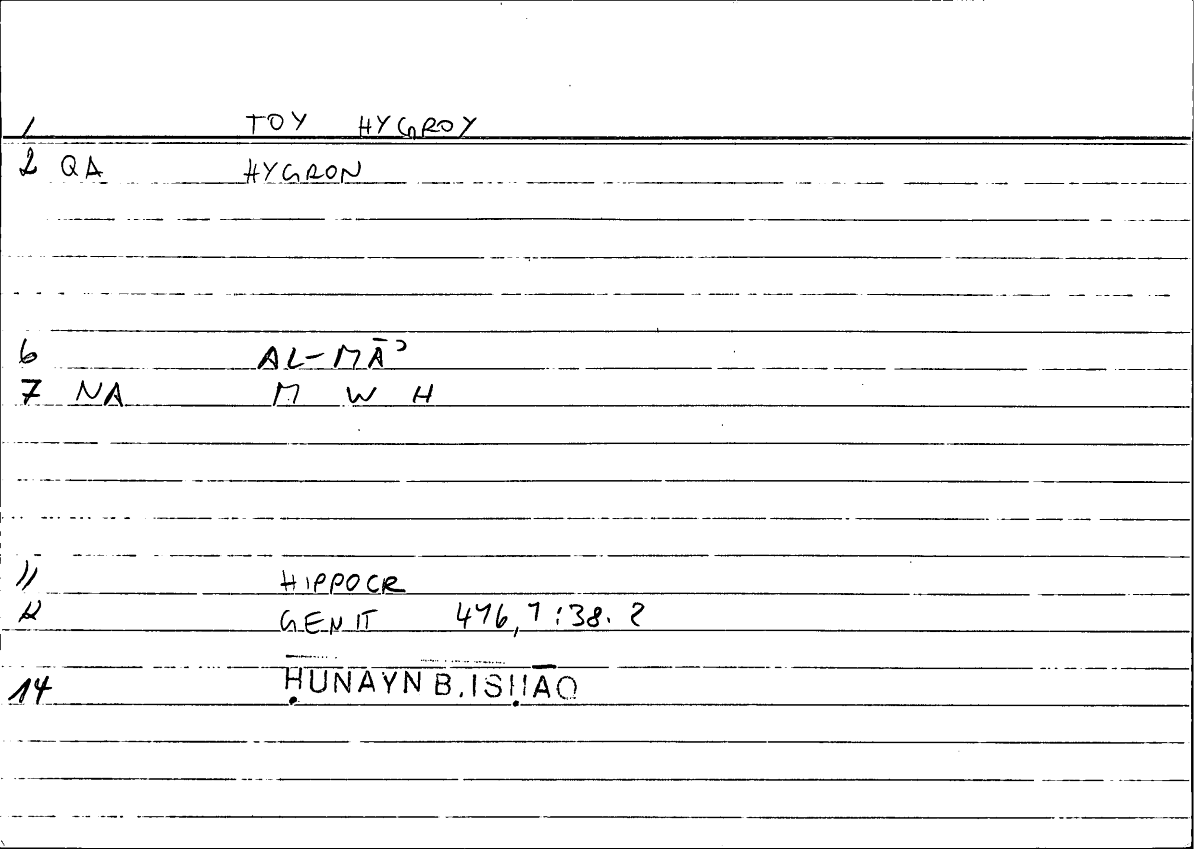 1 TOY HYGROY
2 QA HYGRON
6 AL-MĀʾ
7 NA M W H
11 HIPPOCR
12 GENIT 476,7:38.2
14 ḤUNAYN B. ISḤĀQ